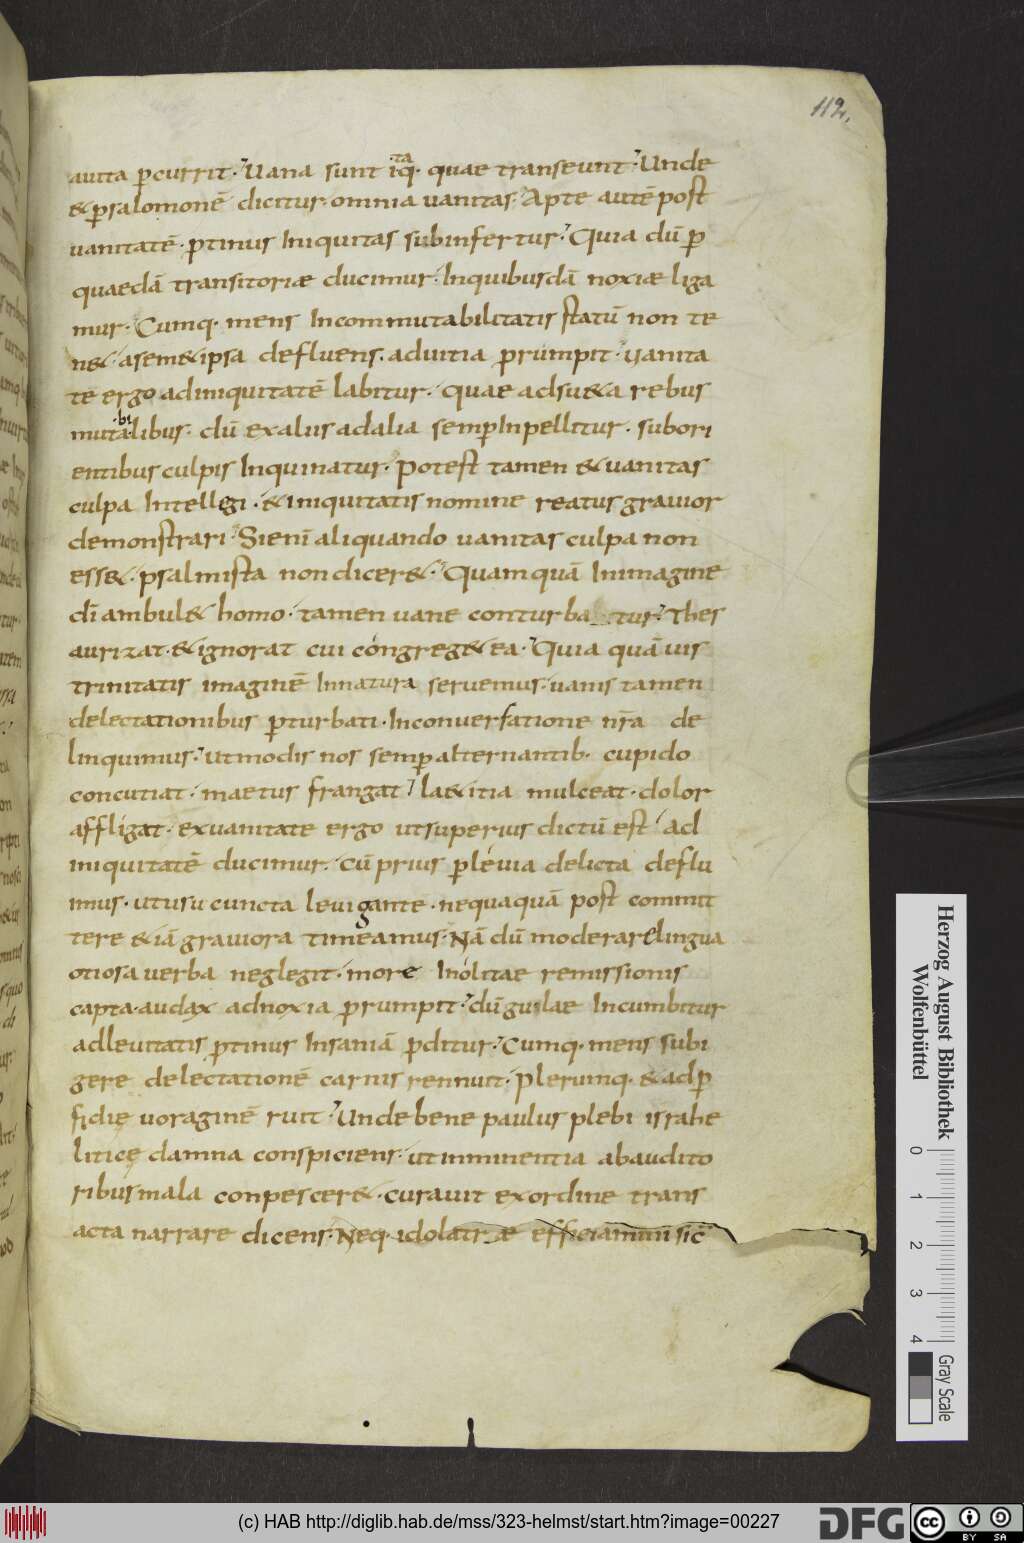 112.
auita ꝑcurrit. Uana sunt itaq. quae transeunt. Unde
&ꝑsalomonē dicitur. omnia uanitas. Apte autē post
uanitatē. ꝓtinus Iniquitas subinfertur. Quia dū ꝑ
quaedā transitoriæ ducimur. Inquibusdā noxiæ liga
mur. Cumq. mens Incommutabilitatis statū non te
n&. asem&ipsa defluens. aduitia prumpit. uanita
te ergo adiniquitatē labitur. quae adsu&a rebus
mutabilibus. dū exaliis adalia semꝑInpellitur. subori
entibus culpis Inquinatur. Potest tamen &uanitas
culpa Intellegi. &iniquitatis nomine reatus grauior
demonstrari. Sienī aliquando uanitas culpa non
ess&. psalmista non dicer&. Quamquā Inimagine
dī ambul& homo. tamen uane conturbatur. Thes
aurizat. &ignorat cui congreg&ea. Quia quāuis
trinitatis imaginē Innatura seruemus. uanis tamen
delectationibus ꝑturbati. Inconuersatione nr̄a de
linquimus. utmodis nos semꝑalternantib. cupido
concutiat. maetus frangat. la&itia mulceat. dolor
affligat. exuanitate ergo utsuperius dictū est. Ad
iniquitatē ducimur. cū prius ꝑleuia delicta deflu
imus. utusu cuncta leuigante. nequaquā post commit
tere &iā grauiora timeamus. Nā dū moderarelingua
otiosa uerba neglegit. more Inolitae remissionis
capta. audax adnoxia prumpit. dū gulae Incumbitur
adleuitatis ꝓtinus Insaniā ꝓditur. Cumq. mens subi
gere delectationē carnis rennuit. plerumq. &adꝑ
fidię uoraginē ruit. Unde bene paulus plebi israhe
liticę damna conspiciens. utimminentia abaudito
ribus mala conpescer&. curauit exordine trans
acta narrare dicens. Neq. idolatræ efficiamini sic̄
Herzog August Bibliothek
Wolfenbüttel
0 1 2 3 4
Gray Scale
(c) HAB http://diglib.hab.de/mss/323-helmst/start.htm?image=00227
DFG
cc BY SA